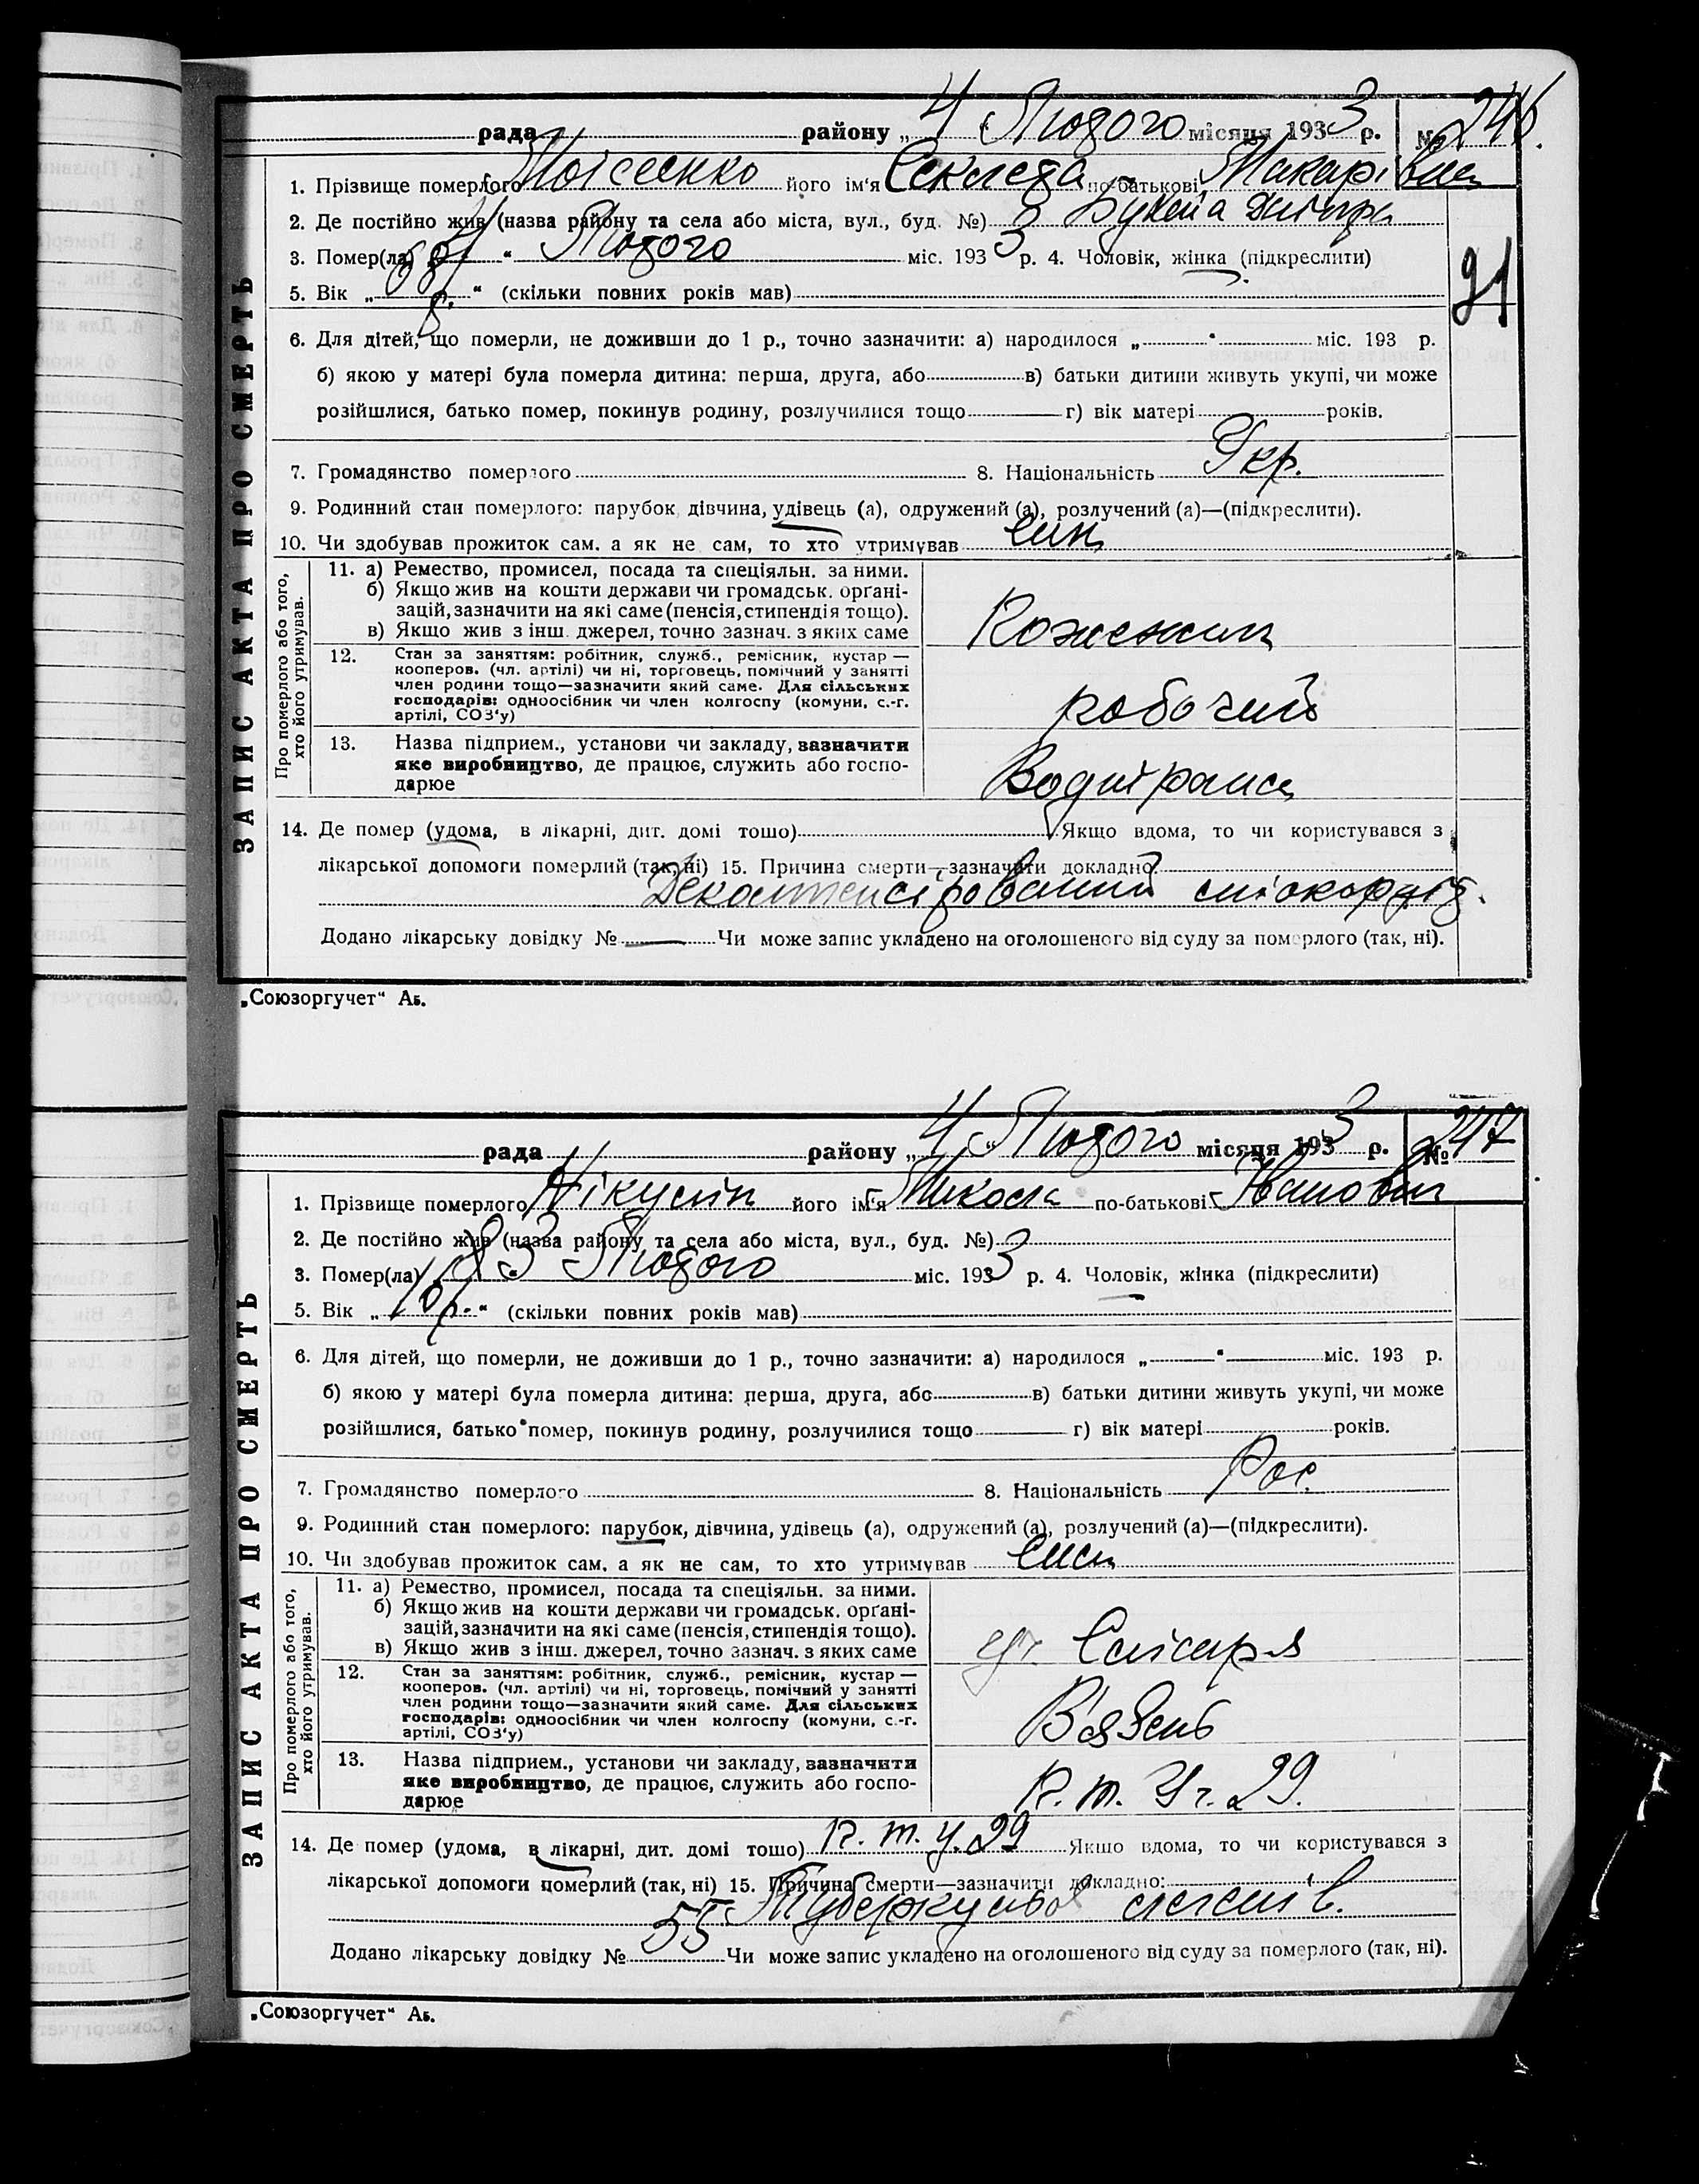 рада району „ 4 “ Лютого місяця 1933 р. № 246.
1. Прізвище померлого Моісеєнко його ім'я Секлета по-батькові Макарівна
2. Де постійно жив (назва району та села або міста, вул., буд. №)
3. Помер(ла) „ 4 “ Лютого міс. 1933 р. 4. Чоловік, жінка (підкреслити)
91
5. Вік „ “ (скільки повних років мав)
6. Для дітей, що померли, не доживши до 1 р., точно зазначити: а) народилося „ “ міс. 193 р.
б) якою у матері була померла дитина: перша, друга, або в) батьки дитини живуть укупі, чи може
розійшлися, батько помер, покинув родину, розлучилися тощо г) вік матері років.
7. Громадянство померлого 8. Національність Укр.
9. Родинний стан померлого: парубок, дівчина, удівець (а), одружений (а), розлучений (а)—(підкреслити).
10. Чи здобував прожиток сам, а як не сам, то хто утримував син
ЗАПИС АКТА ПРО СМЕРТЬ
Про померлого або того, хто його утримував.
11. а) Ремество, промисел, посада та спеціяльн. за ними.
б) Якщо жив на кошти держави чи громадськ. орґані-
зацій, зазначити на які саме (пенсія, стипендія тощо).
в) Якщо жив з інш. джерел, точно зазнач. з яких саме
12. Стан за заняттям: робітник, служб., ремісник, кустар —
кооперов. (чл. артілі) чи ні, торговець, помічний у занятті
член родини тощо—зазначити який саме. Для сільських
господарів: одноосібник чи член колгоспу (комуни, с.-г.
артілі, СОЗ'у)
робочий
13. Назва підприєм., установи чи закладу, зазначити
яке виробництво, де працює, служить або госпо-
дарює
Водтранс
14. Де помер (удома, в лікарні, дит. домі тощо) Якщо вдома, то чи користувався з
лікарської допомоги померлий (так, ні) 15. Причина смерти—зазначити докладно:
Декомпенсірований міокардіт.
Додано лікарську довідку № — Чи може запис укладено на оголошеного від суду за померлого (так, ні).
„Союзоргучет“ Аб.
рада району „ 4 “ Лютого місяця 1933 р. № 247
1. Прізвище померлого Нікулін його ім'я Микола по-батькові Іванович
2. Де постійно жив (назва району та села або міста, вул., буд. №)
3. Помер(ла) „ 3 “ Лютого міс. 1933 р. 4. Чоловік, жінка (підкреслити)
5. Вік „ “ (скільки повних років мав)
6. Для дітей, що померли, не доживши до 1 р., точно зазначити: а) народилося „ “ міс. 193 р.
б) якою у матері була померла дитина: перша, друга, або в) батьки дитини живуть укупі, чи може
розійшлися, батько помер, покинув родину, розлучилися тощо г) вік матері років.
7. Громадянство померлого 8. Національність Рос.
9. Родинний стан померлого: парубок, дівчина, удівець (а), одружений (а), розлучений (а)—(підкреслити).
10. Чи здобував прожиток сам, а як не сам, то хто утримував
ЗАПИС АКТА ПРО СМЕРТЬ
Про померлого або того, хто його утримував.
11. а) Ремество, промисел, посада та спеціяльн. за ними.
б) Якщо жив на кошти держави чи громадськ. орґані-
зацій, зазначити на які саме (пенсія, стипендія тощо).
в) Якщо жив з інш. джерел, точно зазнач. з яких саме
уч. Слюсаря
12. Стан за заняттям: робітник, служб., ремісник, кустар —
кооперов. (чл. артілі) чи ні, торговець, помічний у занятті
член родини тощо—зазначити який саме. Для сільських
господарів: одноосібник чи член колгоспу (комуни, с.-г.
артілі, СОЗ'у)
Вязень
13. Назва підприєм., установи чи закладу, зазначити
яке виробництво, де працює, служить або госпо-
дарює
14. Де помер (удома, в лікарні, дит. домі тощо) Якщо вдома, то чи користувався з
лікарської допомоги померлий (так, ні) 15. Причина смерти—зазначити докладно:
Туберкульоз легенів.
Додано лікарську довідку № 55 Чи може запис укладено на оголошеного від суду за померлого (так, ні).
„Союзоргучет“ Аб.